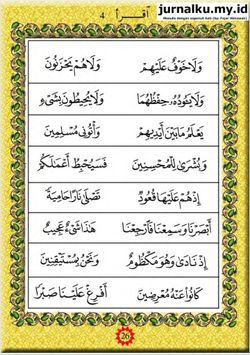 jurnalku.my.id
اقرأ 4
وَلَاخَوْفٌ عَلَيْهِمْ وَلَاهُمْ يَحْزَنُونَ
وَلَايَـُٔودُهُ حِفْظُهُمَا وَلَايُحِيطُونَ بِشَىْءٍ
يَعْلَمُ مَابَيْنَ أَيْدِيهِمْ وَأْتُونِى مُسْلِمِينَ
وَبُشْرَى لِلْمُحْسِنِينَ فَسَيُحْبِطُ أَعْمَلَكُمْ
إِذْهُمْ عَلَيْهَا قُعُودٌ تَصْلَى نَارًا حَامِيَةً
أَبْصَرْنَا وَسَمِعْنَا فَارْجِعْنَا هَذَا شَىْءٌ عَجِيبٌ
إِذْ نَادَى وَهُوَ مَكْظُومٌ وَنَحْنُ بِمُسْتَيْقِنِينَ
كَانُوا عَنْهُ مُعْرِضِينَ أَفْرِغْ عَلَيْنَا صَبْرًا
26